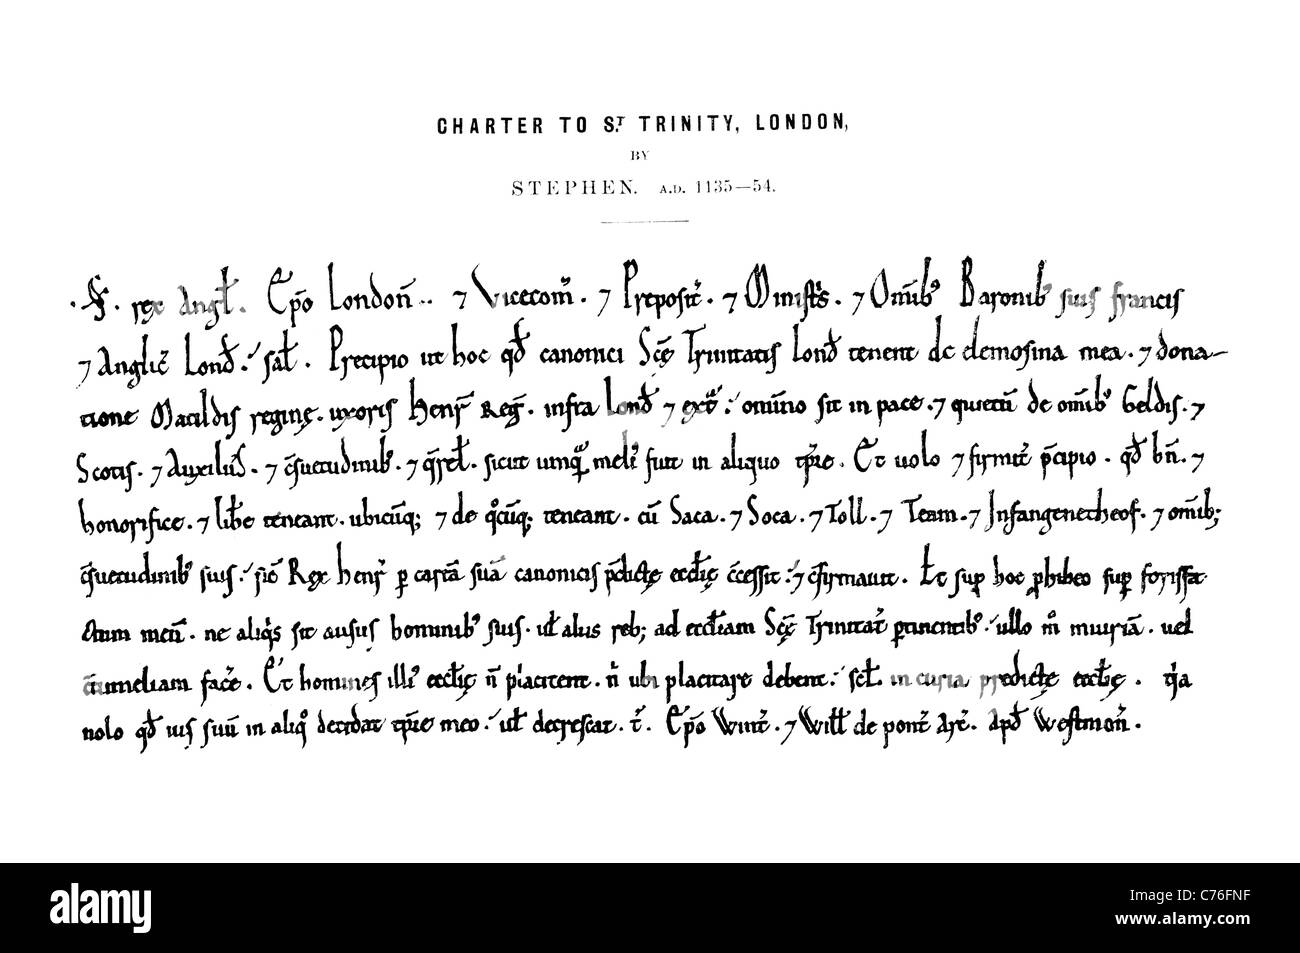 CHARTER TO ST. TRINITY, LONDON,
BY
STEPHEN. A.D. 1135—54.
.S. rex Angł. Ep̄o London̄.. ⁊ Vicecom̄. ⁊ Preposit̃. ⁊ Minist̃s. ⁊ Om̄ib; Baronib; suis francis
⁊ Anglic̃ Lond̄. sał. Precipio ut hoc qd̄ canonici Sc̄ę Trinitatis Lond̄ tenent de elemosina mea. ⁊ dona-
tione Matildis reginę. uxoris Henr̃ Reg̃. infra Lond̄ ⁊ ext̃. om̄ino sit in pace. ⁊ quietū de om̄ib; Geldis. ⁊
Scotis. ⁊ Auxiliis. ⁊ c̄suetudinib;. ⁊ q̄reł. sicut umq̄ meli᷒ fuit in aliquo tp̄re. Et uolo ⁊ firmit̃ p̄cipio. qd̄ bn̄. ⁊
honorifice. ⁊ lib̄e teneant. ubicūq; ⁊ de q̊cūq; teneant. cū Saca. ⁊ Soca. ⁊ Toll. ⁊ Team. ⁊ Infangenetheof. ⁊ om̄ib;
c̄suetudinib; suis. sic̄ Rex henr̃ p cartā suā canonicis p̄dictę eccłię c̄cessit. ⁊ c̄firmauit. Et sup hoc phibeo sup forisfa
ctum meū. ne aliq̃s sit ausus hominib; suis. uł aliis reb; ad eccłiam Sc̄ę Trinitat̃ ptinentib; ullo m̊ iniuriā. uel
c̄tumeliam fac̃e. Et homines illi᷒ eccłię n̄ placitent. n̄ ubi placitare debent. scł. in curia predictę eccłię. q̃a
nolo qd̄ ius suū in aliq̊ decidat tp̄re meo. uł decrescat. T̃. Ep̄o Wint̃. ⁊ Wilł de pont̃ Ar̃. Apd̄ Westmon̄.
alamy
Image ID: C76FNF
www.alamy.com